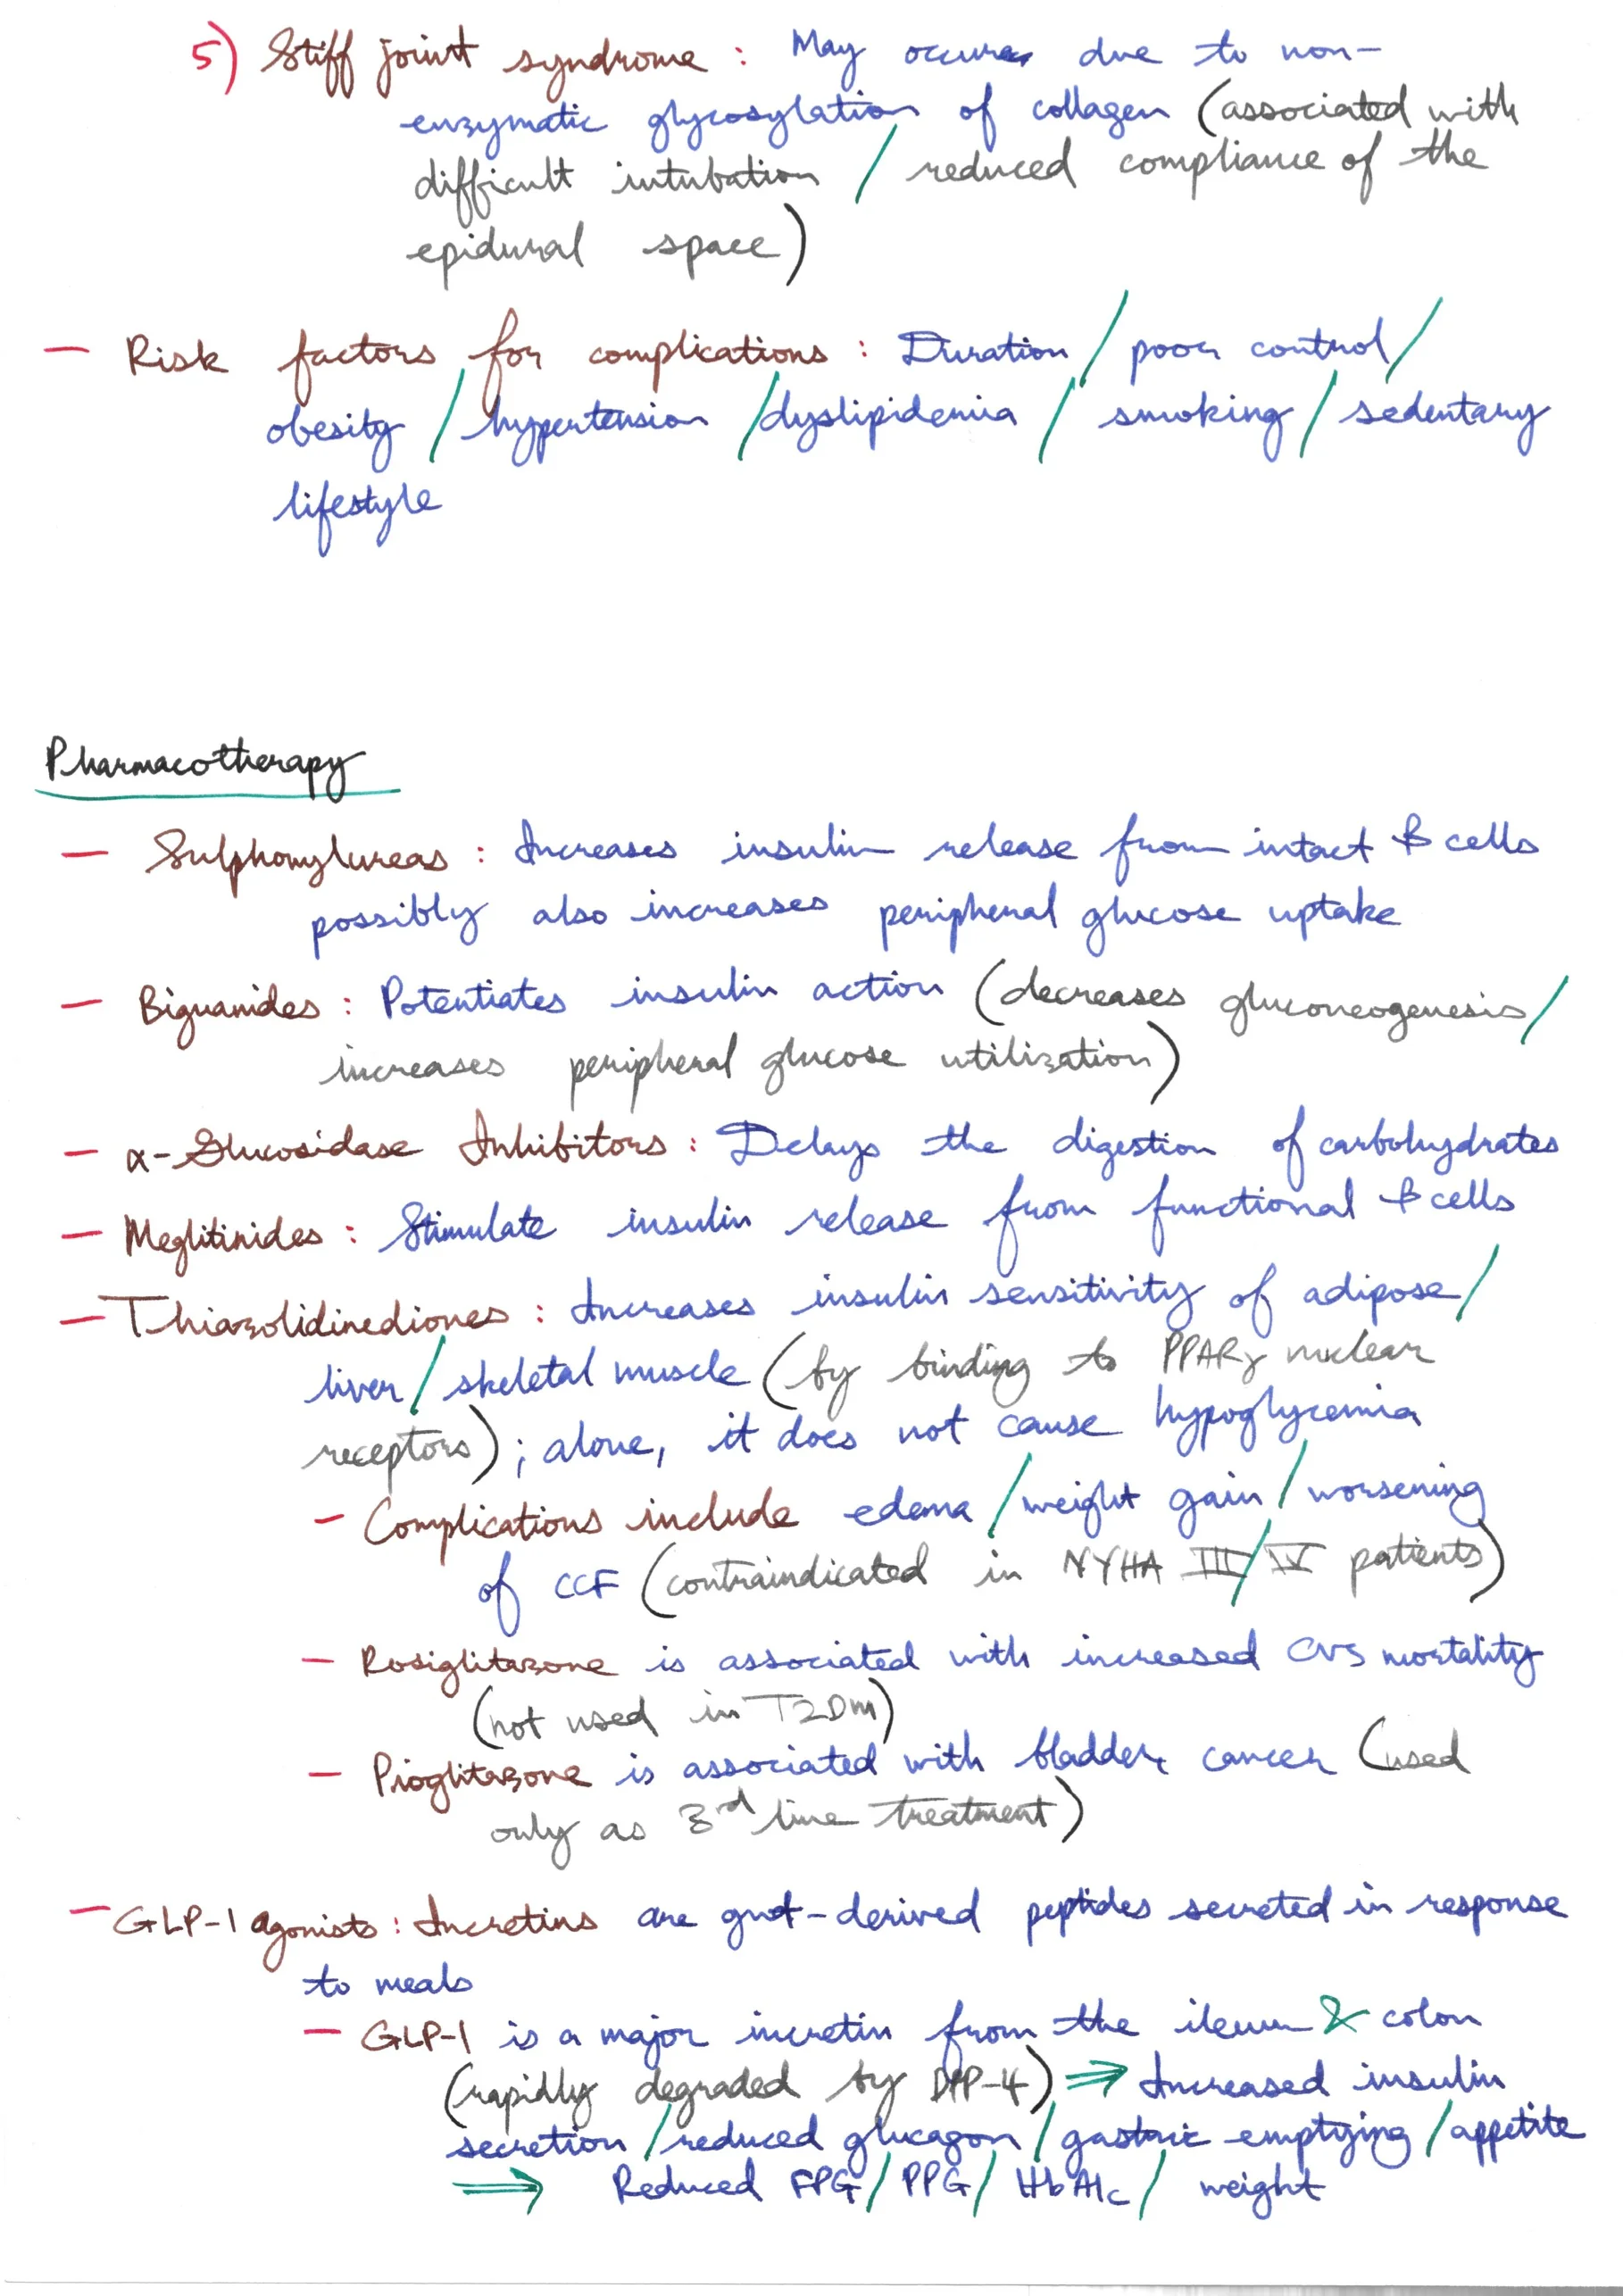 5) Stiff joint syndrome : May occurs due to non-
enzymatic glycosylation of collagen (associated with
difficult intubation / reduced compliance of the
epidural space)
— Risk factors for complications : Duration / poor control /
obesity / hypertension / dyslipidemia / smoking / sedentary
lifestyle
Pharmacotherapy
— Sulphonylureas : Increases insulin release from intact β cells
possibly also increases peripheral glucose uptake
— Biguanides : Potentiates insulin action (decreases gluconeogenesis /
increases peripheral glucose utilization)
— α-Glucosidase Inhibitors : Delays the digestion of carbohydrates
— Meglitinides : Stimulate insulin release from functional β cells
— Thiazolidinediones : Increases insulin sensitivity of adipose /
liver / skeletal muscle (by binding to PPARγ nuclear
receptors) ; alone, it does not cause hypoglycemia
— Complications include edema / weight gain / worsening
of CCF (contraindicated in NYHA III / IV patients)
— Rosiglitazone is associated with increased CVS mortality
(not used in T2DM)
— Pioglitazone is associated with bladder cancer (used
only as 3rd line treatment)
— GLP-1 agonists : Incretins are gut-derived peptides secreted in response
to meals
— GLP-1 is a major incretin from the ileum & colon
(rapidly degraded by DPP-4) ⇒ Increased insulin
secretion / reduced glucagon / gastric emptying / appetite
⇒ Reduced FPG / PPG / HbA1c / weight